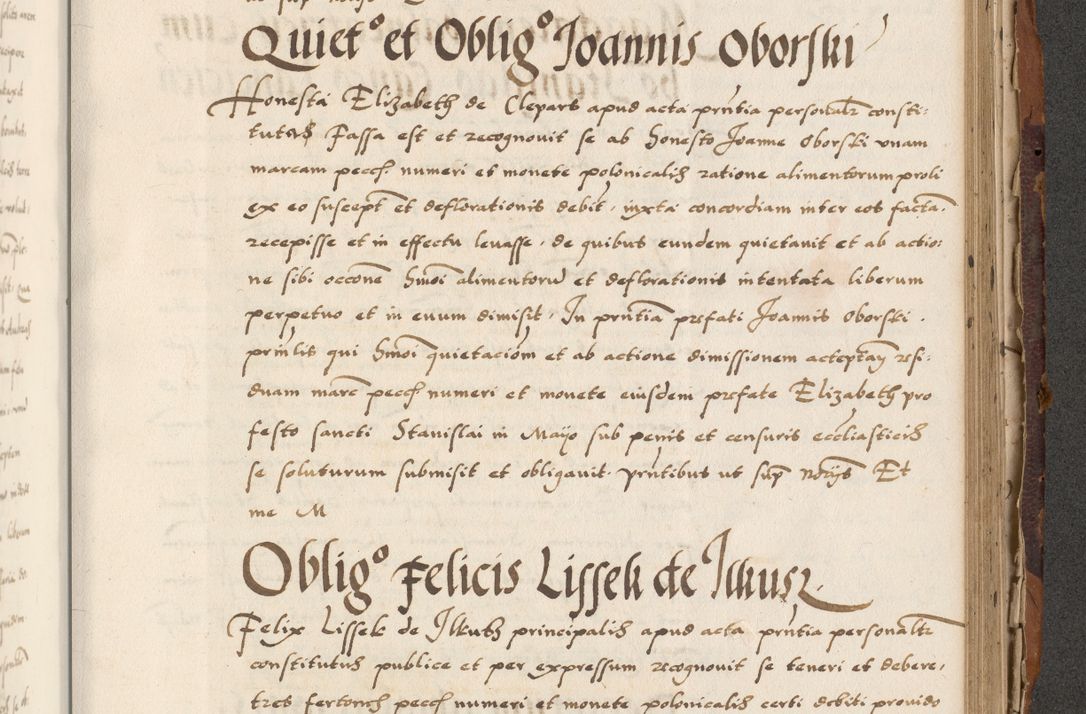 Quiet⁰ et Oblig⁰ Joannis Oborski
Honesta Elizabeth de Clepars apud acta prñtia personalr consti:
tutas Fassa est et recognovit se ab honesto Joanne Oborski vnam
marcam pecc numeri et monete polonicalis ratione alimentorum proli
ex eo suscept et deflorationis debit, iuxta concordiam inter eos facta,
recepisse et in effectu leuasse, de quibus eundem quietauit et ab actio:
ne sibi occone hmoi alimentoru et deflorationis intentata liberum
perpetuo et in euum dimisit, In prñtia prefati Joannis Oborski,
prinlis qui hmoi quietaciom et ab actione dimissionem acceptan resi:
duam marc pecc numeri et monete eiusdem prefate Elizabeth pro
festo sancti Stanislai in Mayo sub penis et censuris eccliasticis
se soluturum submisit et obligauit, prñtibus ut sup Et
me M
Oblig⁰ Felicis Lissek de Ilkusz
Felix Lissek de Ilkusz principalis apud acta prñtia personaltr
constitutus publice et per expressum recognouit se teneri et debere,
tres fertonis pecc numeri et monete polonicalis certi debiti prouido